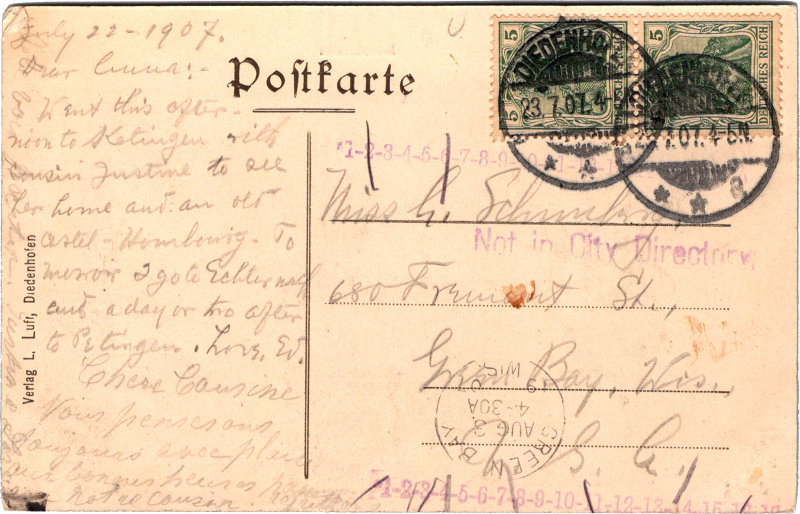 July 22-1907.
Dear Anna:-
Went this after-
noon to Ketingen with
cousin Justine to see
her home and an old
castel - Hombourg. To
morrow I go to Echternach
and a day or two after
to Petingen. Love, Ed.
Chere Cousine
Vous penserons
toujours avec
bonnes heures
notre cousin
Verlag L. Luft, Diedenhofen
Postkarte
5 5 DEUTSCHES REICH
5 DEUTSCHES REICH
DIEDENHOFEN
23.7.07.4-5N.
*1-2-3-4-5-6-7-8-9-10-11-
Miss G.
Not in City Directory
680 Fremont St.,
Green Bay, Wis.,
U. S. A.,
GREEN BAY
WIS.
AUG 3
4-30A
*1-2-3-4-5-6-7-8-9-10-11-12-13-14-15-16-